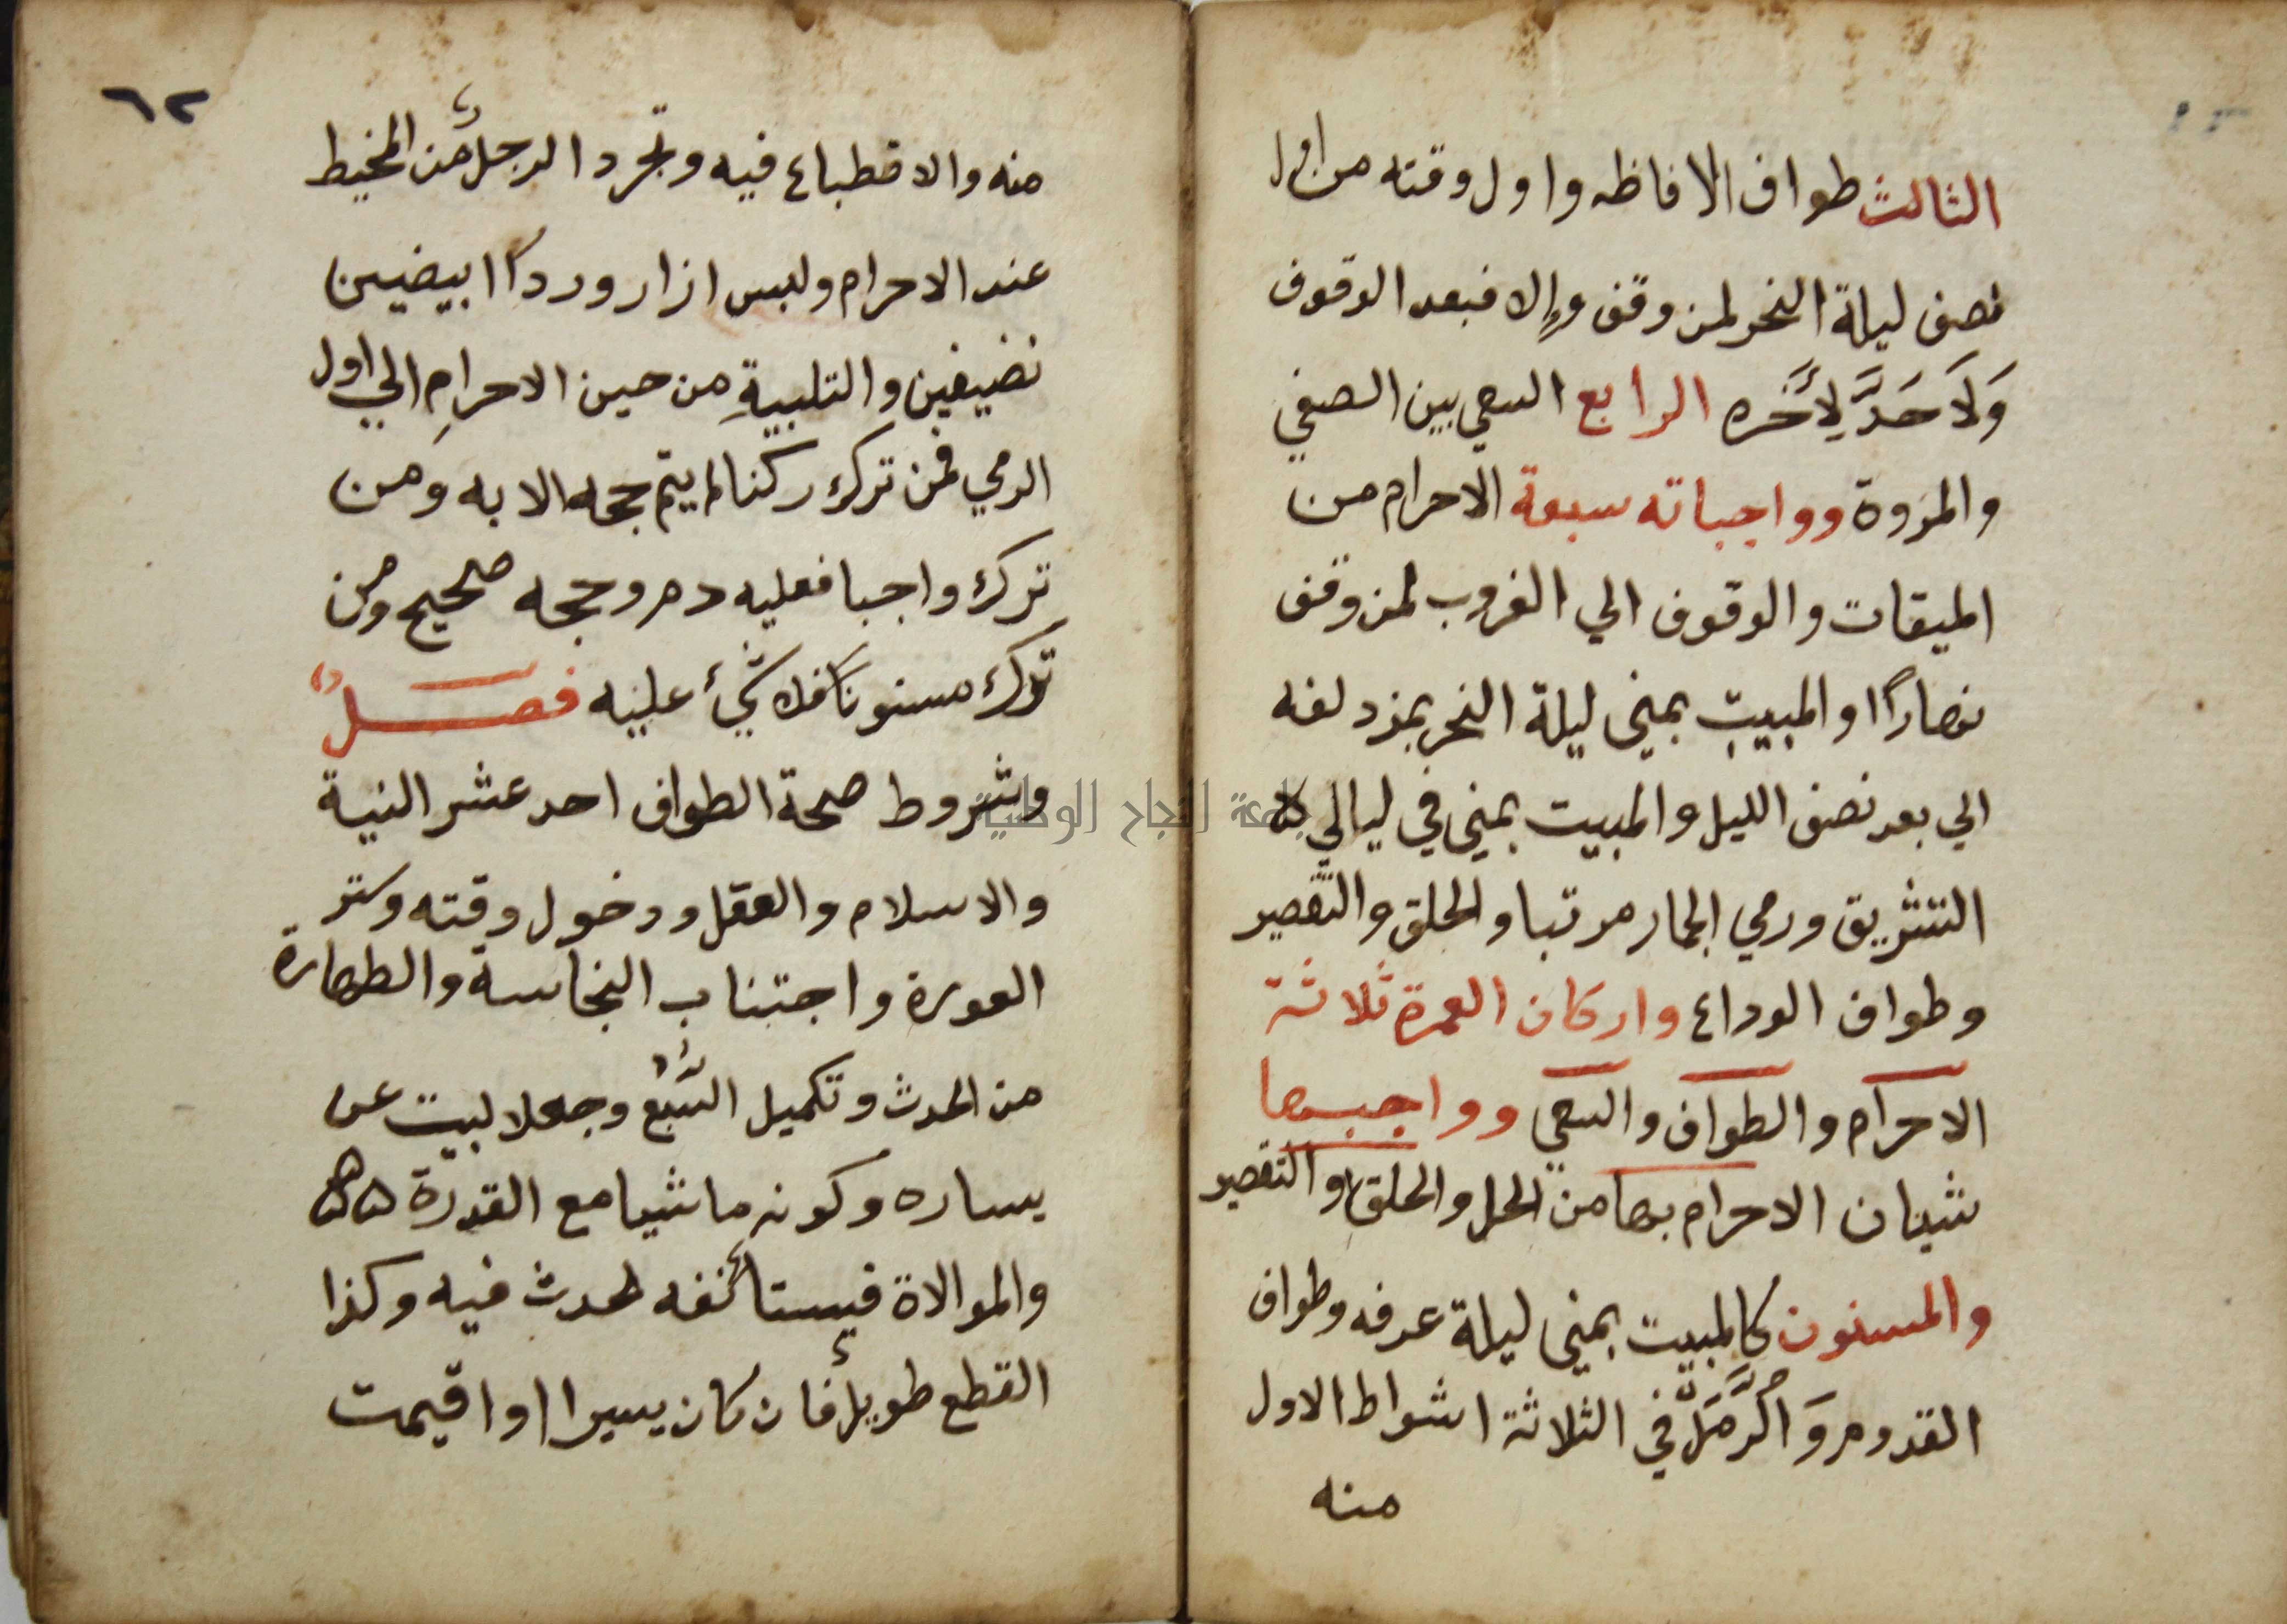 الثالث طواف الافاظه واول وقته من اول
نصف ليلة النحر لمن وقف وإلا فبعد الوقوف
وَلَا حَدَّ لِأَخَره الرابع السعي بين الصفي
والمروة وواجباته سبعة الاحرام من
الميقات والوقوف الي الغروب لمن وقف
نهارًا والمبيت بمني ليلة النحر بمزدلفه
الي بعد نصف الليل والمبيت بمني في ليالي
التشريق ورمي الجمار مرتبا والحلق والتقصير
وطواف الوداع واركان العمرة ثلاثة
الاحرام والطواف والسعي وواجبها
شيان الاحرام بها من الحل والحلق او التقصير
والمسنون كالمبيت بمني ليلة عرفه وطواف
القدوم وَالرَّمَل في الثلاثة اشواط الاول
منه
٦٢
منه والاقطباع فيه وتجرد الرجل من المخيط
عند الاحرام ولبس ازار وردآ ابيضين
نضيفين والتلبيةِ من حين الاحرامِ الي اول
الرمي فمن ترك ركنا لم يتم حجه الا به ومن
ترك واجبا فعليه دم وحجه صحيح ومن
ترك مسنونا فلا شئ عليه فصل
وشروط صحة الطواف احد عشر النية
والاسلام والعقل ودخول وقته وستر
العورة واجتناب النجاسة والطهارة
من الحدث وتكميل السَّبْع وجعل البيت عن
يساره وكونه ماشيا مع القدرة
والموالاة فيستأنفه لحدث فيه وكذا
القطع طويل فان كان يسيرا او اقيمت
جامعة النجاح الوطنية